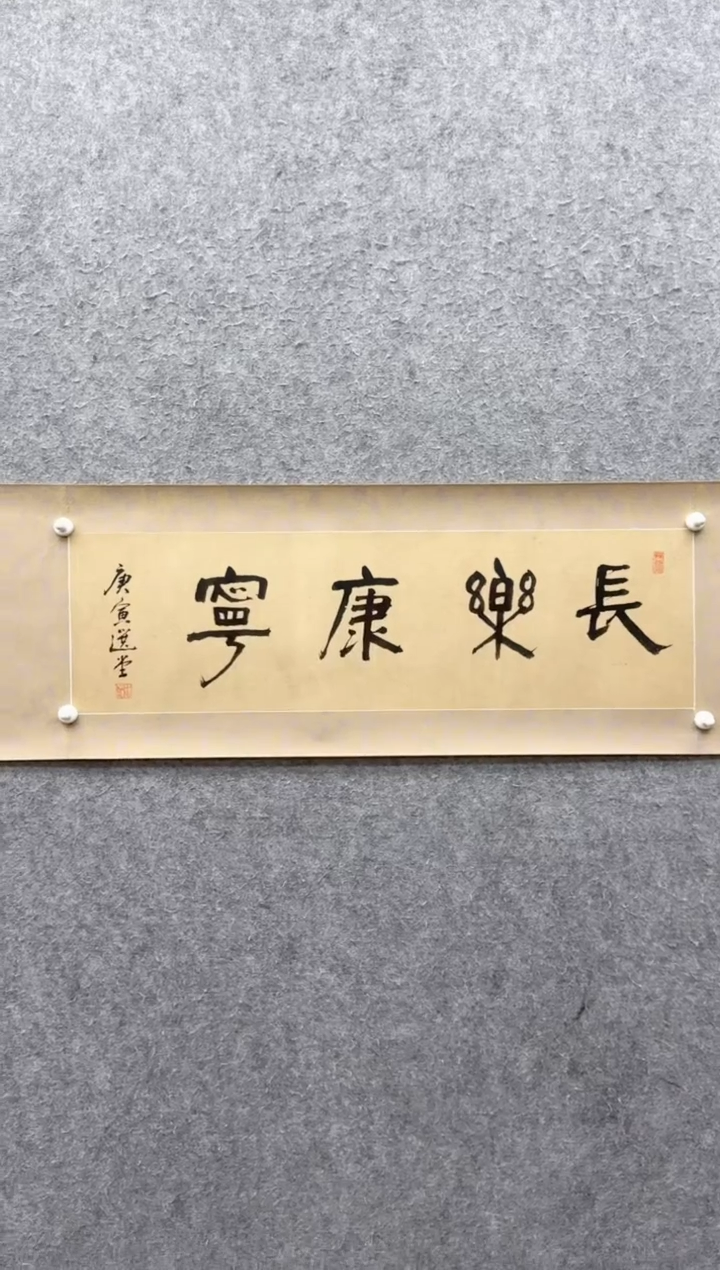 長樂康寧
庚寅選堂